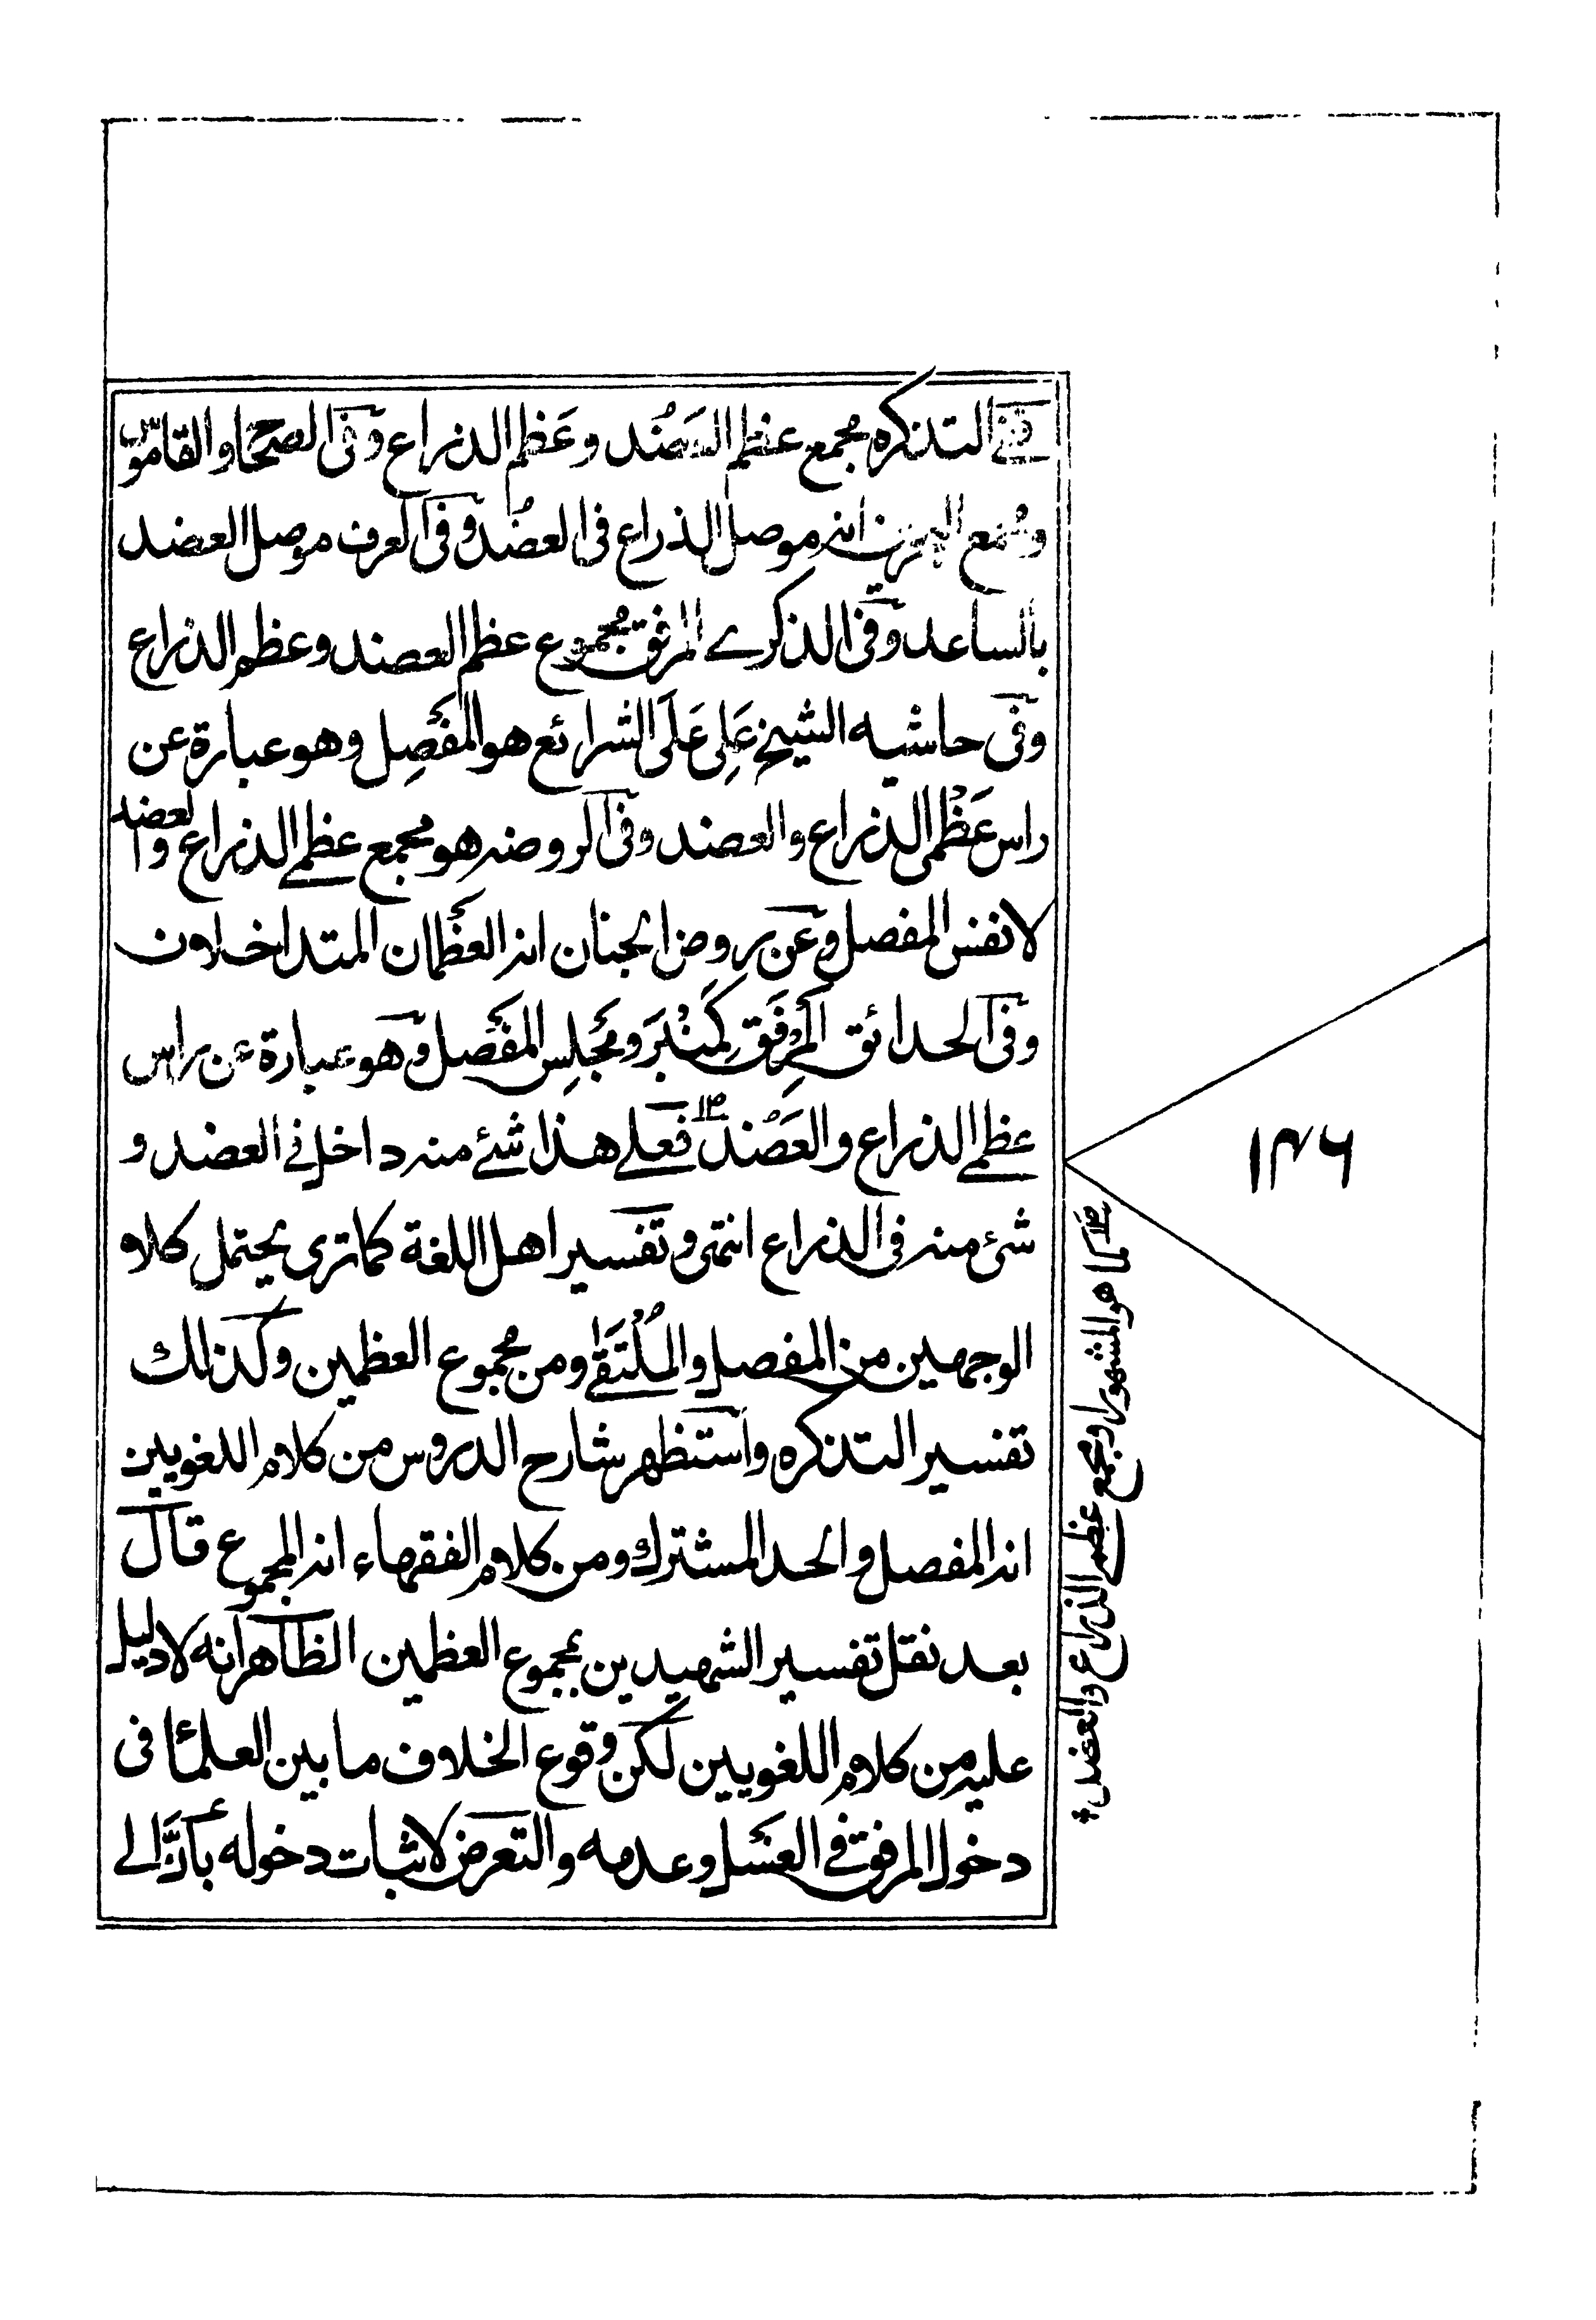 في التذكره مجمع عظم العَضُد و عَظم الذراع وفى الصحاح والقاموس
ومجمع البحرين انه موصل الذراع فى العضُد وفى العرف موصل العضد
بالساعد وفى الذكرے المرفق مجموع عظم العضد وعظم الذراع
وفى حاشيه الشيخ عَلِى عَلَى الشرائع هو المَفصِل وهو عبارة عن
راس عَظْمى الذراع والعضد وفى الروضه هو مجمع عظمے الذراع والعضد
لا نفس المفصل وعن روض الجنان انه العَظمان المتداخلان
وفى الحدائق المِرْفَق كَمِنْبَر ومَجلِس المَفصل وهو عبارة عن راس
عظمے الذراع والعَضُد ١٢ فعلے هذا شئ منه داخل في العضد و
شئ منه فى الذراع انتهى وتفسير اهل اللغة كما ترى يحتمل كلا
الوجهين من المفصل والمُلْتَقَے ومن مجموع العظمين وكذلك
تفسير التذكره واستظهر شارح الدروس من كلام اللغويين
انه المفصل والحد المشترك ومن كلام الفقهاء انه المجموع قال
بعد نقل تفسير الشهيدين بمجموع العظمين الظاهر انه لا دليل
عليه من كلام اللغويين لكن وقوع الخلاف ما بين العلمآء فى
دخول المرفق في الغَسل وعدمه والتعرض لاثبات دخوله بأنّ الى
١٢ كما هو المشهور او مجمع عظمے الذراع والعضد
١٣٦